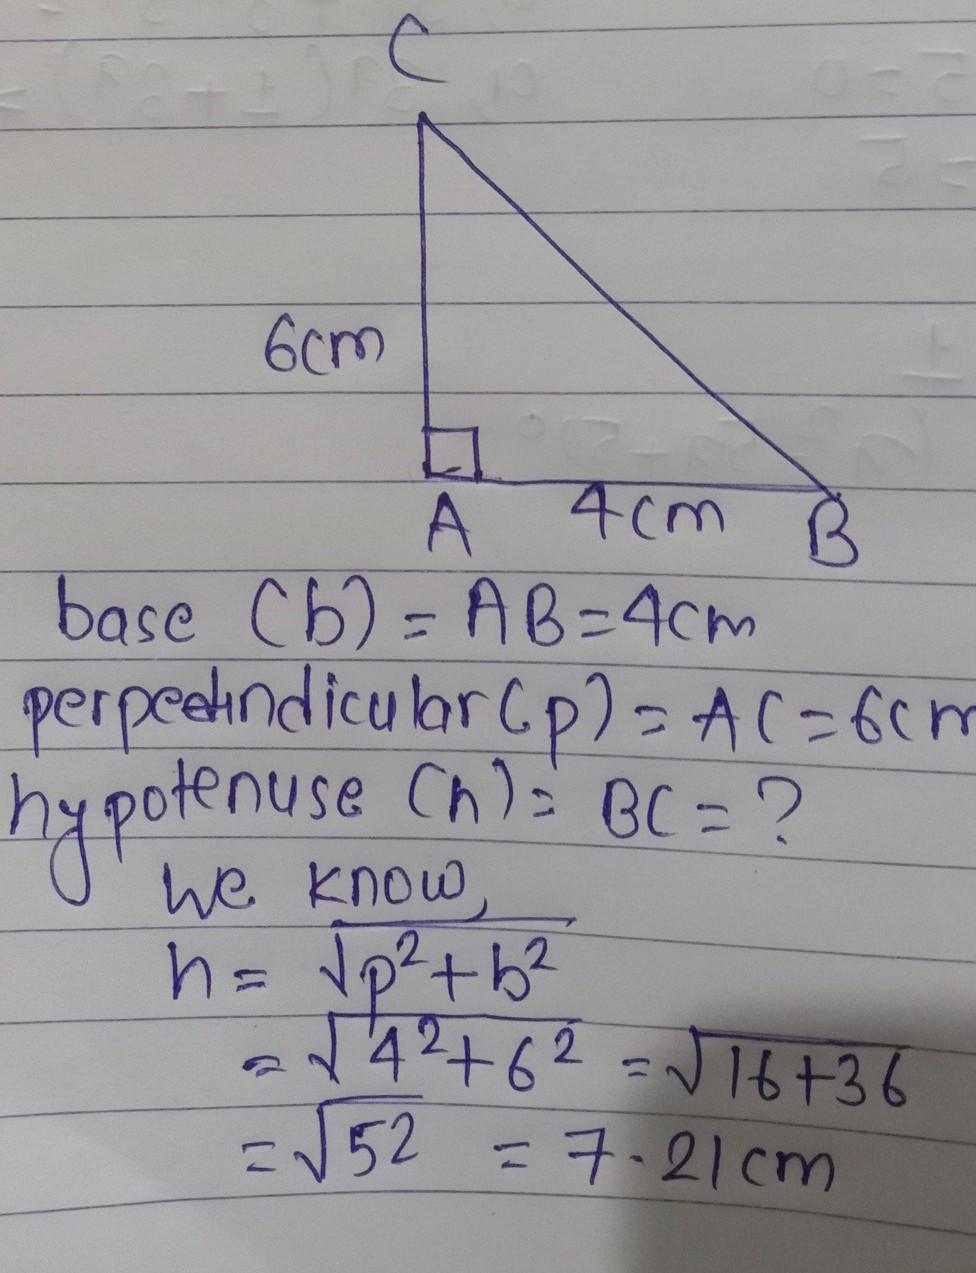 C
6cm
A 4cm B
base (b) = AB = 4cm
perpendicular (p) = AC = 6cm
hypotenuse (h) = BC = ?
We know,
h = √p²+b²
= √4²+6² = √16+36
= √52 = 7.21cm